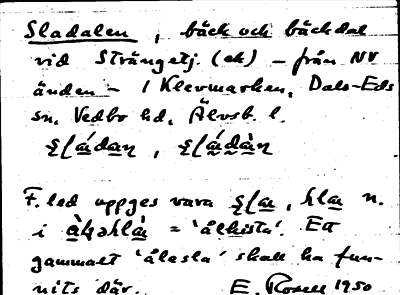 Sladalen, bäck och bäckdal
vid Strängetj. (ek) – från NV
änden – i Klevmarken, Dals-Eds
sn, Vedbo hd, Älvsb. l.
F. led uppges vara
i = 'ålkista'. Ett
gammalt 'ålasla' skall ha fun-
nits där. E. Rosell 1950